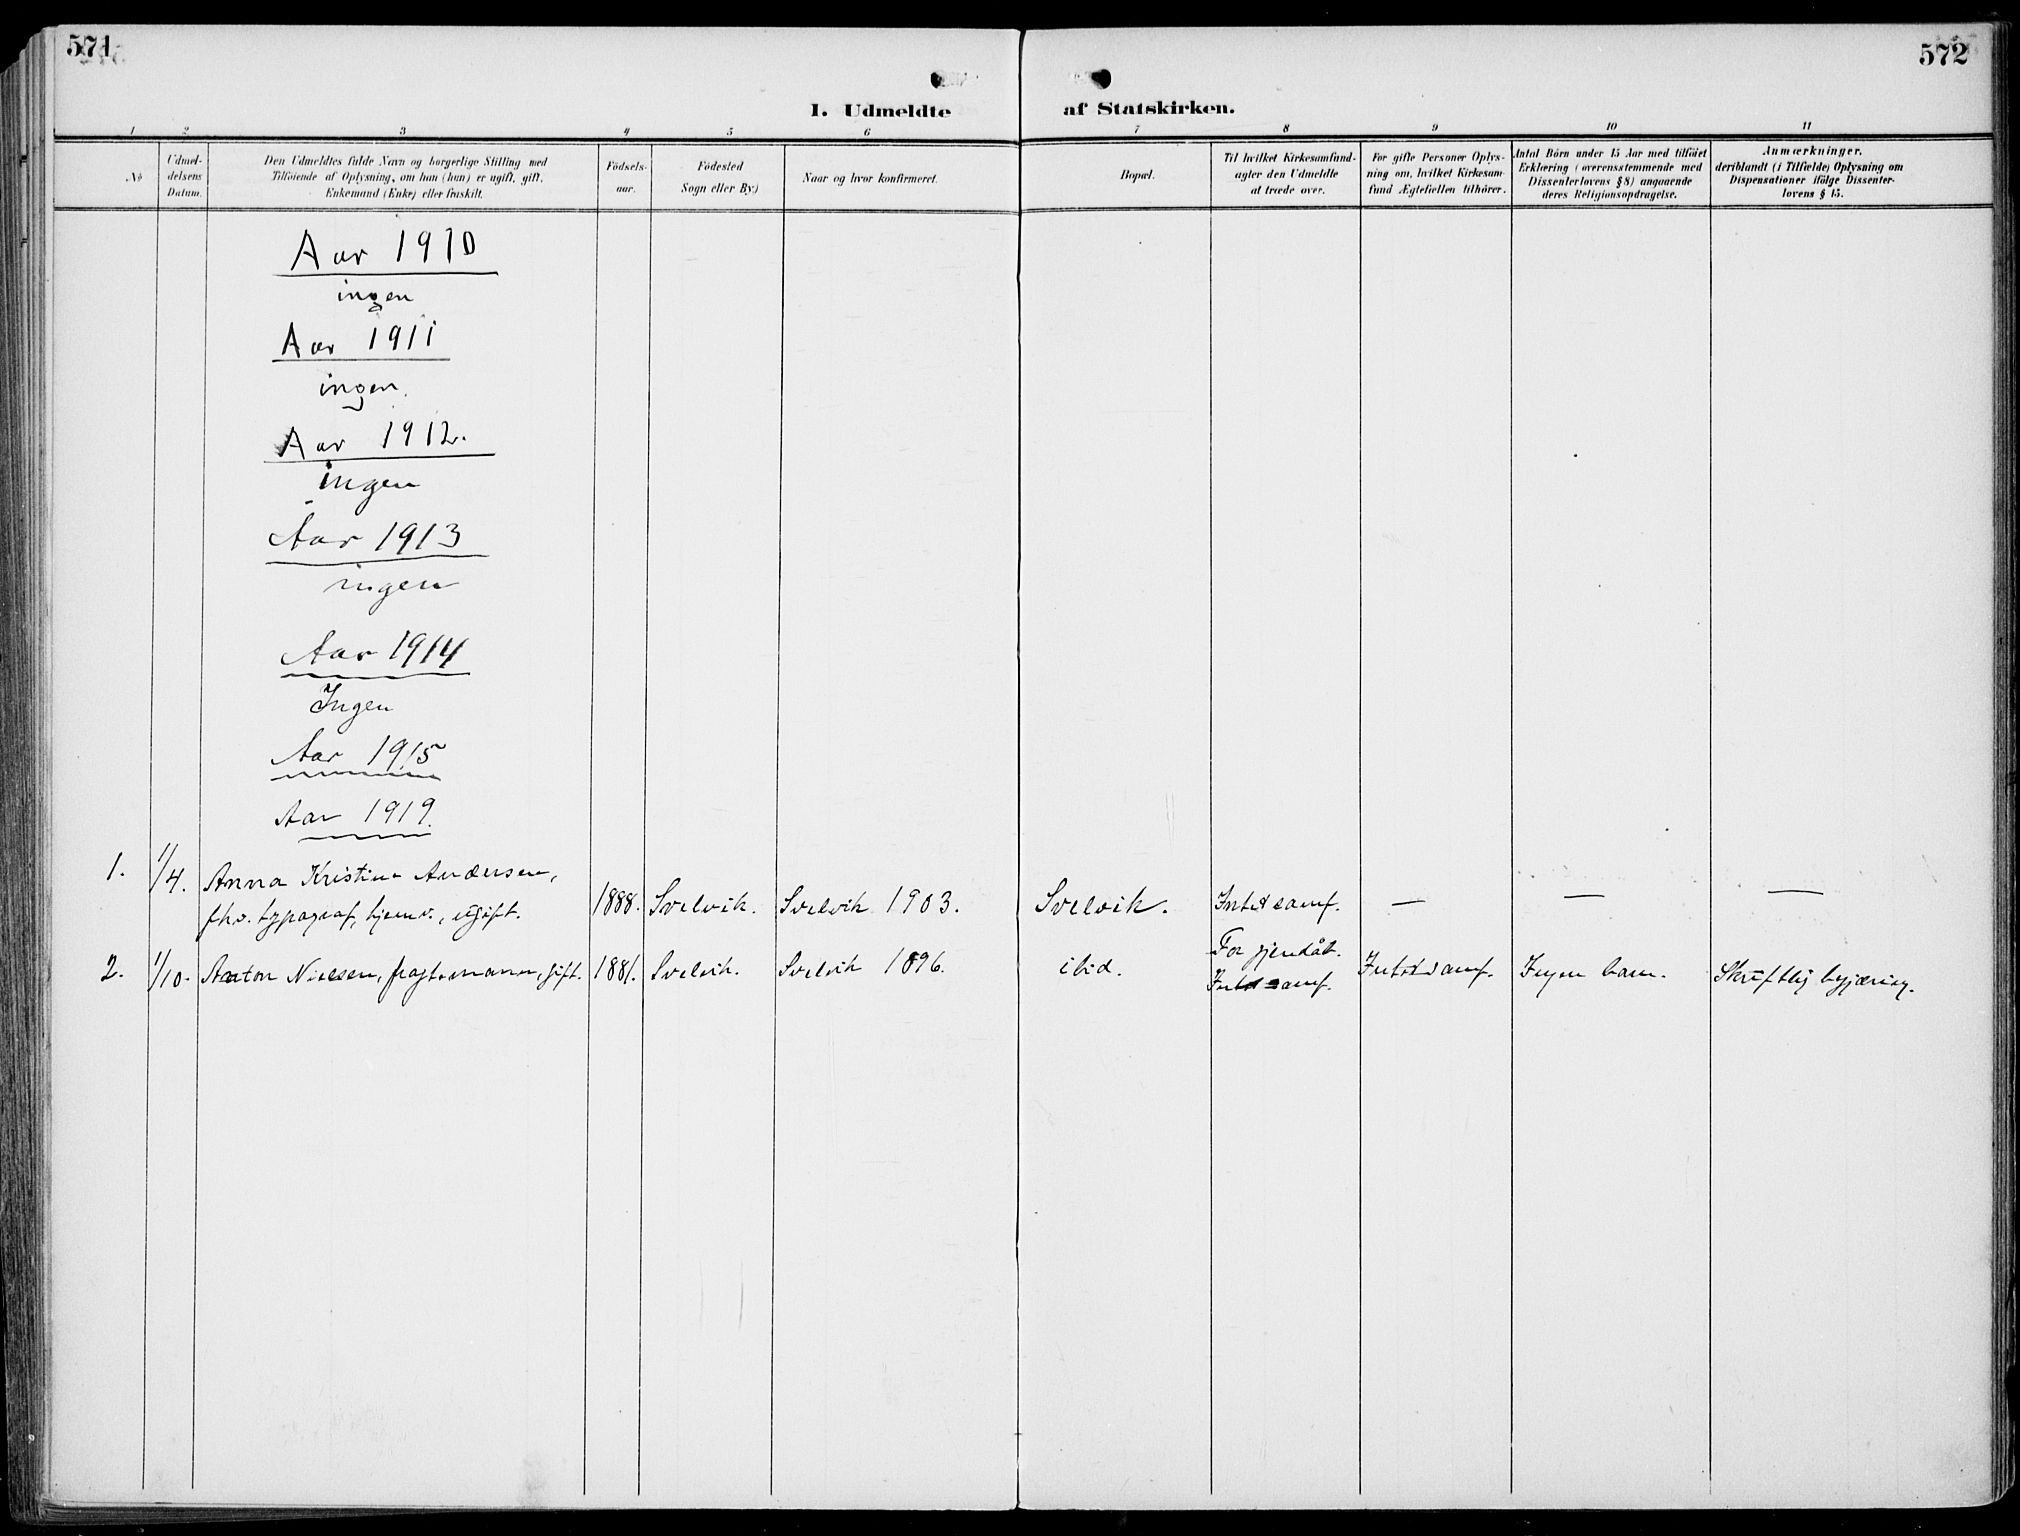 571
572
I. Udmeldte af Statskirken.
1 2 3 4 5 6 7 8 9 10 11
№
Udmel-
delsens
Datum.
Den Udmeldtes fulde Navn og borgerlige Stilling med
Tilføiende af Oplysning, om han (hun) er ugift, gift,
Enkemand (Enke) eller fraskilt.
Fødsels-
aar.
Fødested
Sogn eller By)
Naar og hvor konfirmeret.
Bopæl.
Til hvilket Kirkesamfund-
agter den Udmeldte
at træde over.
For gifte Personer Oplys-
ning om, hvilket Kirkesam-
fund Ægtefællen tilhører.
Antal Börn under 15 Aar med tilføiet
Erklæring (overensstemmende med
Dissenterlovens § 8) angaaende
deres Religionsopdragelse.
Anmærkninger,
deriblandt (i Tilfælde) Oplysning om
Dispensationer ifølge Dissenter-
lovens § 15.
Aar 1910
ingen
Aar 1911
ingen.
Aar 1912.
ingen
Aar 1913
ingen
Aar 1914
Ingen
Aar 1915
Aar 1919.
1. 1/4. Anna Kristine Andersen,
fhv. typograf, hjemv., ugift. 1888. Svelvik. Svelvik 1903. Svelvik. Intet samf. — — —
2. 1/10. Anton Nielsen, fragtemann, gift. 1881. Svelvik. Svelvik 1896. ibid. For gjendåt.
Intet samf. Intet samf. Ingen barn. Skriftlig begjæring.